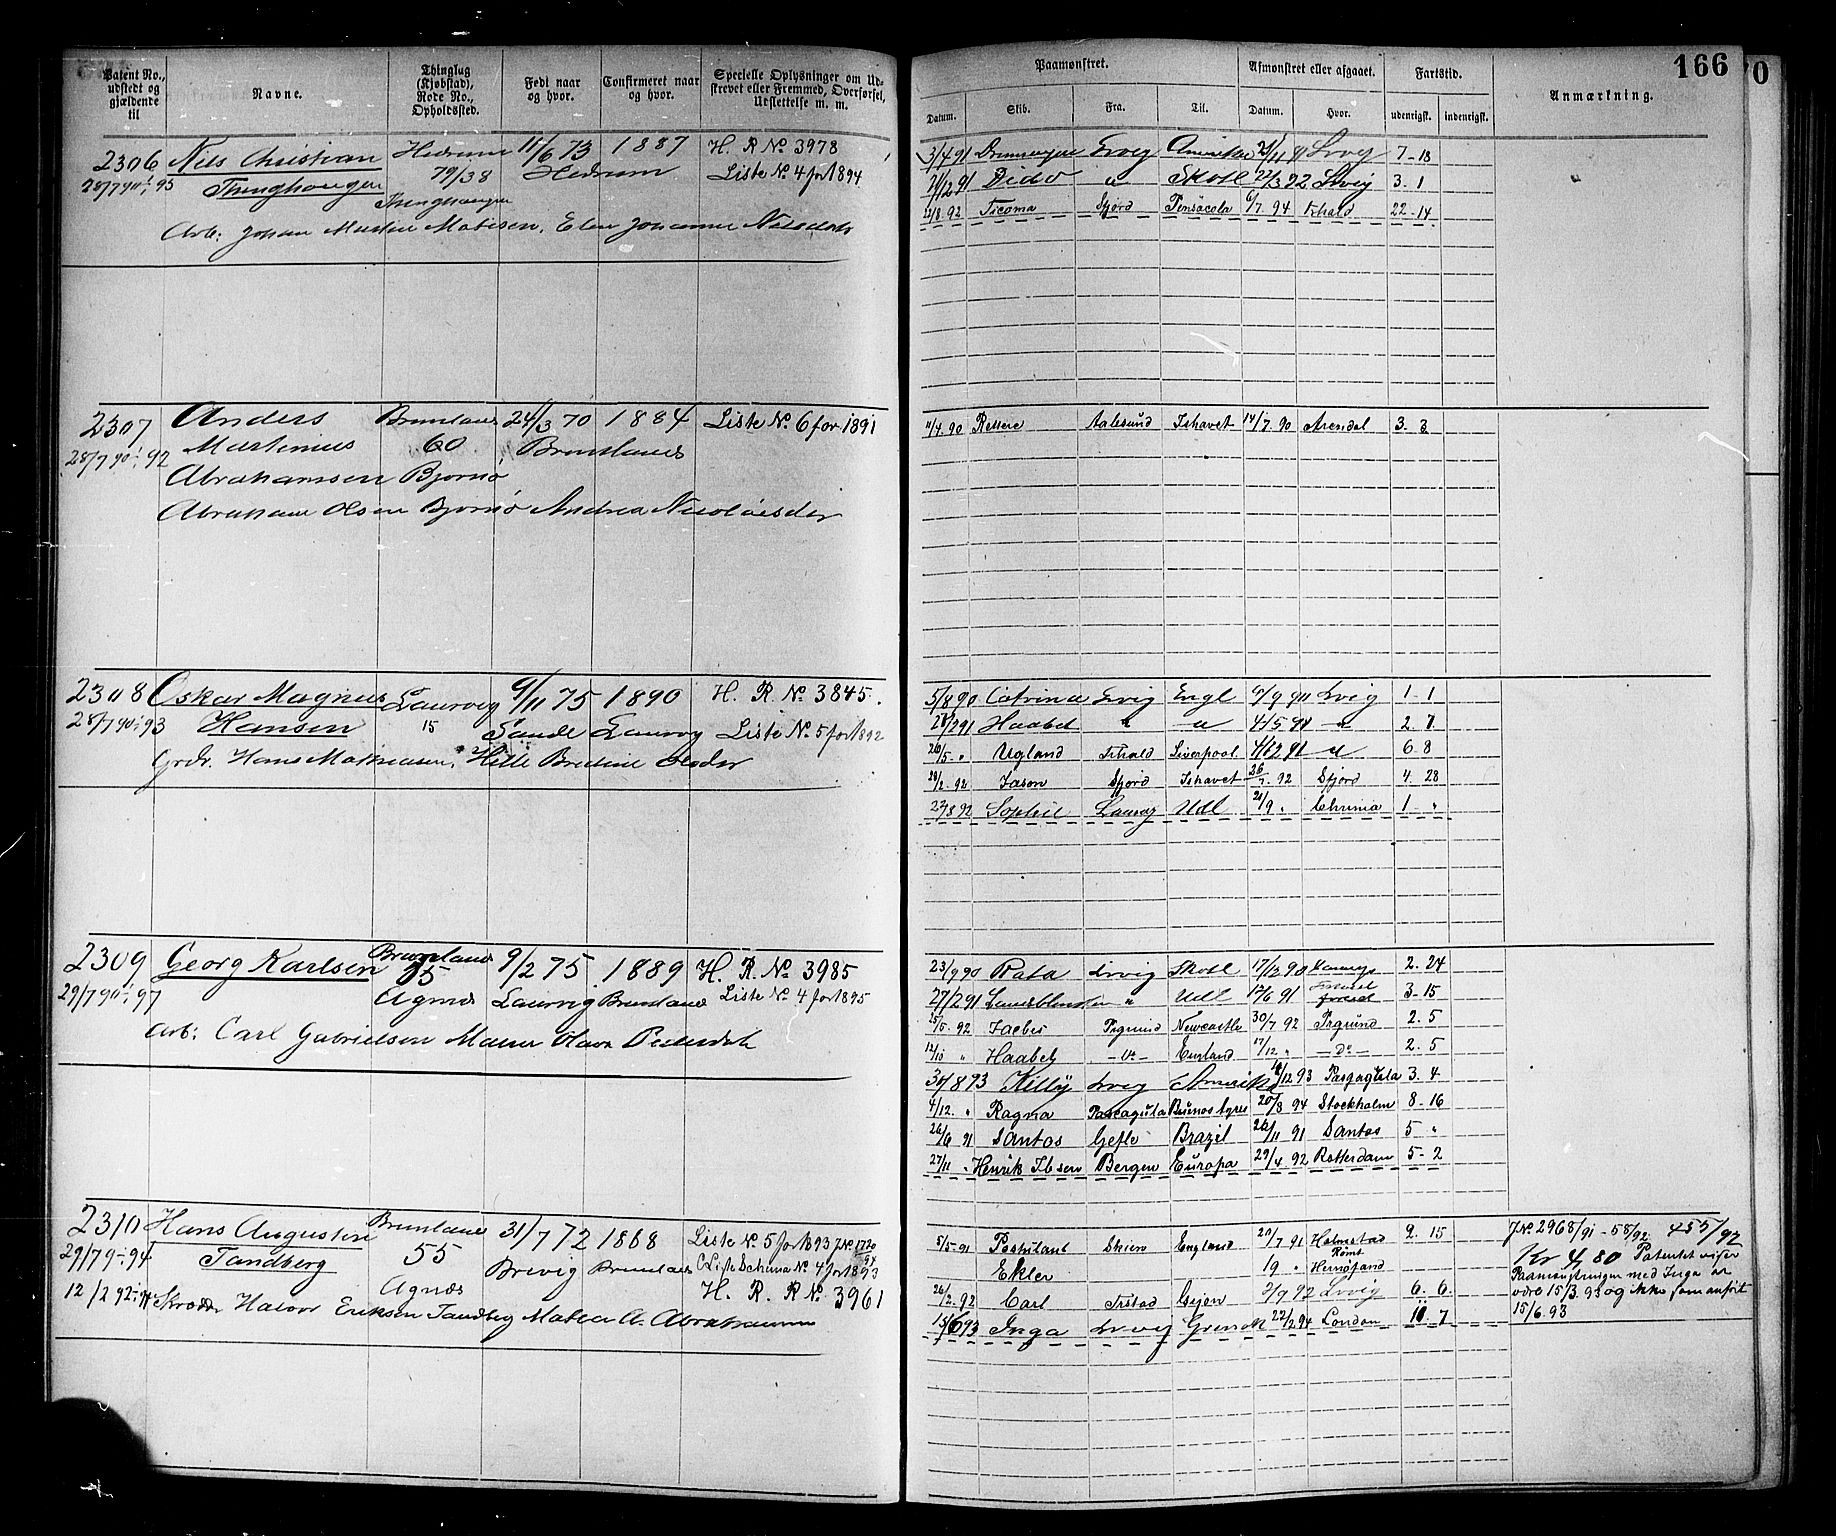 166
70
Patent No., udstedt og gjældende til
Navne.
Thinglag (Kjøbstad), Rode No., Opholdssted.
Født naar og hvor.
Confirmeret naar og hvor.
Specielle Oplysninger om Udskrevet eller Fremmed, Overførsel, Udslettelse m. m.
Paamønstret.
Afmønstret eller afgaaet.
Fartstid.
Anmærkning.
Datum. Skib. Fra. Til. Datum. Hvor. udenrigsk. indenrigsk.
2306 Nils Christian Hedrum 11/6 73 1887 H. R No 3978
28/7 90 ÷ 95 Thinghaugen 79/38 Hedrum Liste No 4 for 1894
Thinghaugen
Arb: Johan Martin Matisen, Elen Johanne Nilsdatr
3/4 91 Lrvig Amerika 21/11 91 Lrvig 7-18
91 Dido " Skotl 22/3 92 Lrvig 3. 1
/8 92 Ticoma Sfjord Pensacola 6/7 94 Frhald 22-14
2307 Anders Brunlanes 24/3 70 1884 Liste No. 6 for 1891
28/7 90 ÷ 92 Martinius 60 Brunlanes
Abrahamsen Bjørnø
Abraham Olsen Bjørnø Andrea Nicolaisdr
11/4 90 Aalesund Ishavet 14/7 90 Arendal 3. 3
2308 Oskar Magnus Laurvig 9/11 75 1890 H. R. No. 3845.
28/7 90 ÷ 93 Hansen 15 Sande Laurvig Liste No. 5 for 1892
Hans Mathiasen,
5/8 90 Catrina Lrvig Engl 6/9 90 Lrvig 1-1
2/2 91 Haabet " " 4/5 91 " 2. 7
26/5 " Ugland Frhald Liverpool 4/12 91 " 6. 8
28/2 92 Jason Sfjord Ishavet 26/7 92 Sfjord 4. 28
27/8 92 Sophie Laurvig Udl 28/9 " Chrania 1 "
2309 Georg Karlsen Brunlanes 9/2 75 1889 H. R. No. 3985
29/7 90 ÷ 97 55 Agnæs Laurvig Brunlanes Liste No 4 for 1895
Arb: Carl Gabrielsen Maren Olava Pedersdatr
23/9 90 Rota Lrvig Skotl 17/12 90 2. 24
27/2 91 " Udl 12/6 91 3-15
25/5 92 Prgrund Newcastle 30/7 92 Prgrund 2. 5
12/10 " Haabet - Do - England 17/12 " - Do - 2. 5
30/8 93 Lrvig Amerika 12 93 Pascagula 3. 4
4/12 " Ragna Pascagula Buenos Ayres 20/8 94 Stockholm 8-16
26/6 91 Santos Gefle Brazil 26/11 91 Santos 5 "
27/11 " Henrik Ibsen Bergen Europa 29/4 92 Rotterdam 5-2
2310 Hans Augustin Brunlanes 31/7 72 1868 Liste No 5 for 1893 J.No. 1720/94
29/7 9 ÷ 94 Tandberg 55 Brevig Brunlanes Liste Schema No. 4 for 1893
12/2 92 ÷ Agnæs H. R. R No. 3961
Halvor Eriksen Tandberg Matea A. Abrahamsen
5/5 91 Postiland Skien England 20/7 91 Halmstad 2. 15
Ekler 19 " Hernøsand
26/2 92 Carl Frstad Dejon 2/9 92 Lrvig 6. 6
15/6 93 Inga Lrvig 22/2 94 London 10. 7
J.No. 2968/91 - 58/92 455/92
Kr 4,80 Patentet viser
Paamønstringen med Inga at
være 15/3. 93 og ikke som anført
15/6. 93